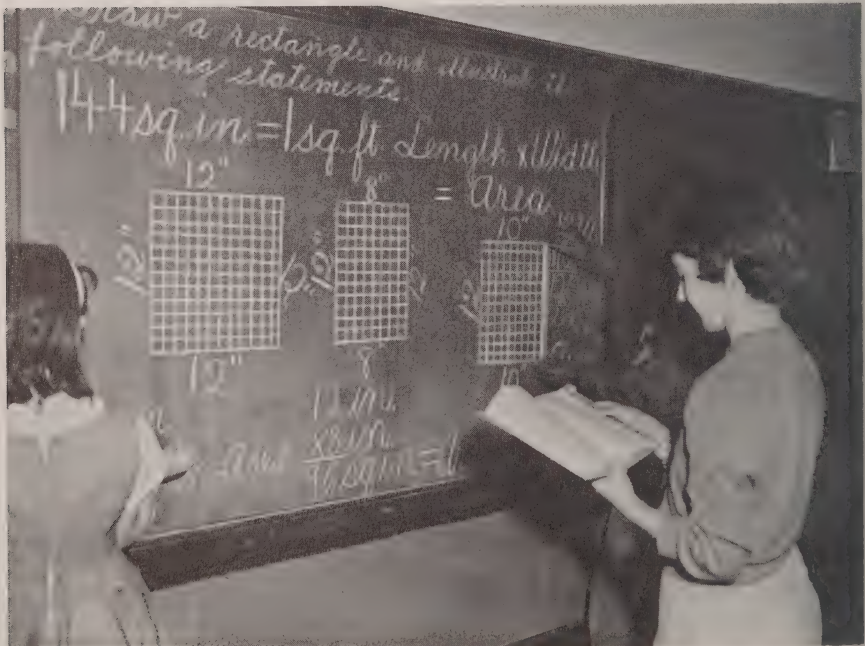 Draw a rectangle and illustrate
following statements.
144 sq. in = 1 sq. ft. Length x Width
= Area
12"
12"
12"
8"
12"
12"
8
10"
12
10
12 in.
Area
96 sq in =